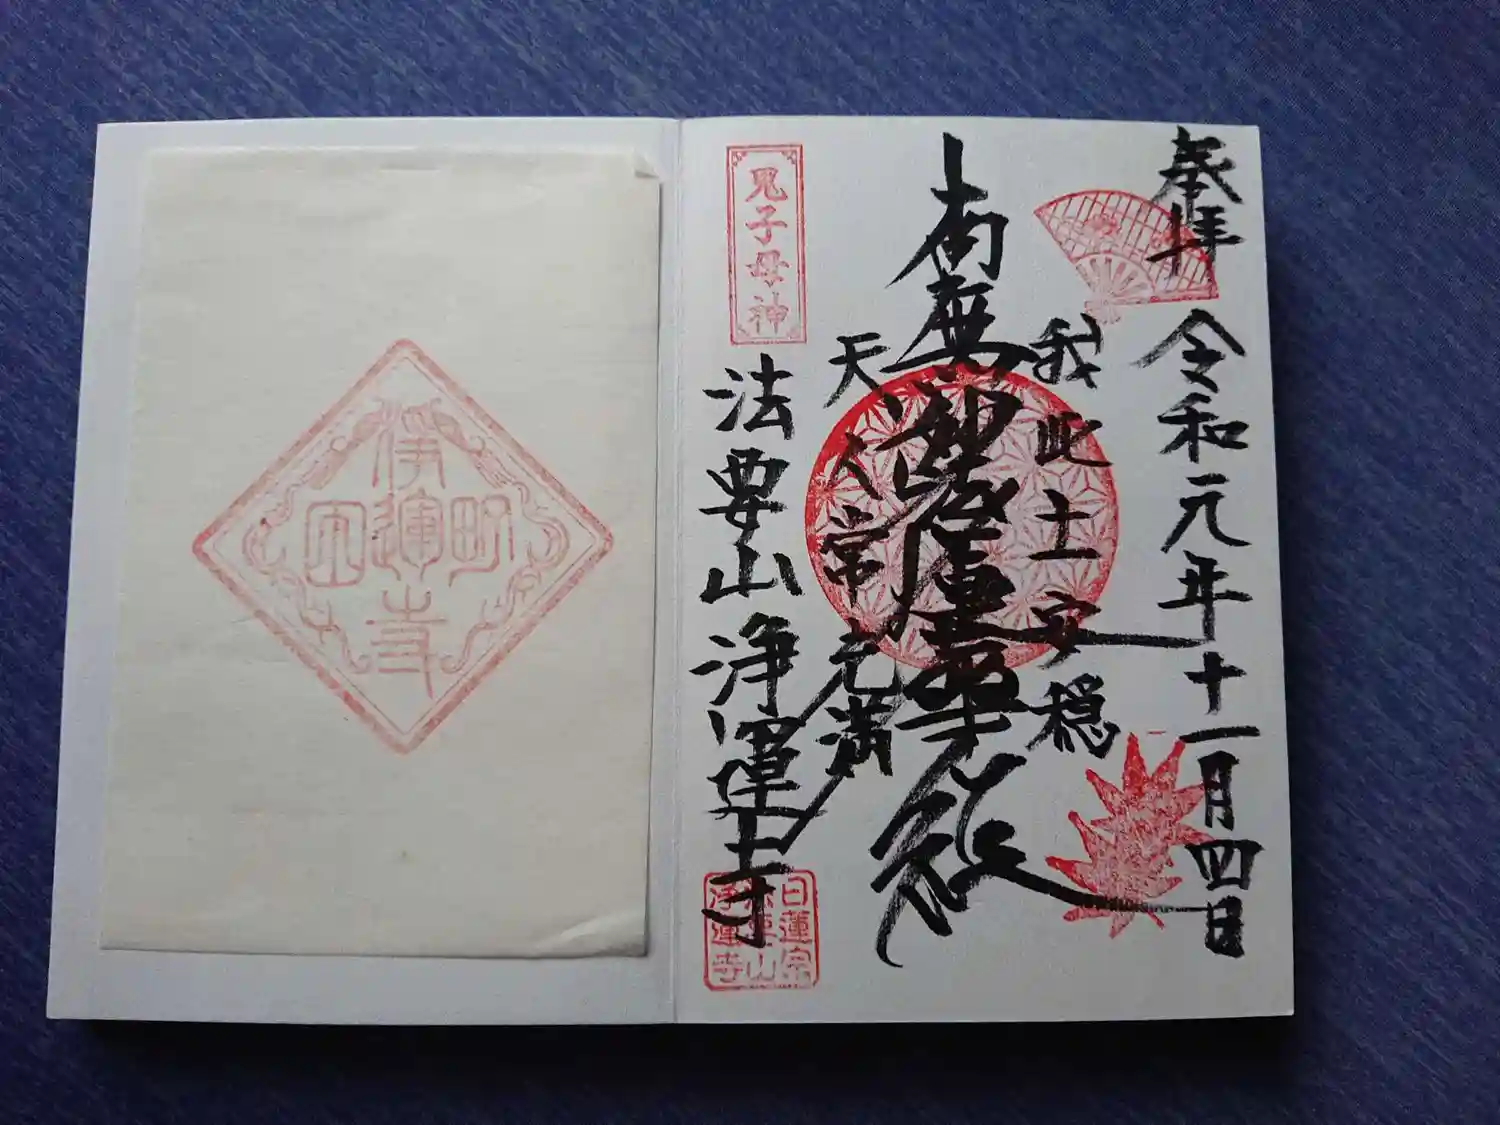 奉拝
令和元年十一月四日
我此土安穏
南無妙法蓮華経
天人常充満
鬼子母神
法要山浄蓮寺
日蓮宗
浄蓮寺
寺